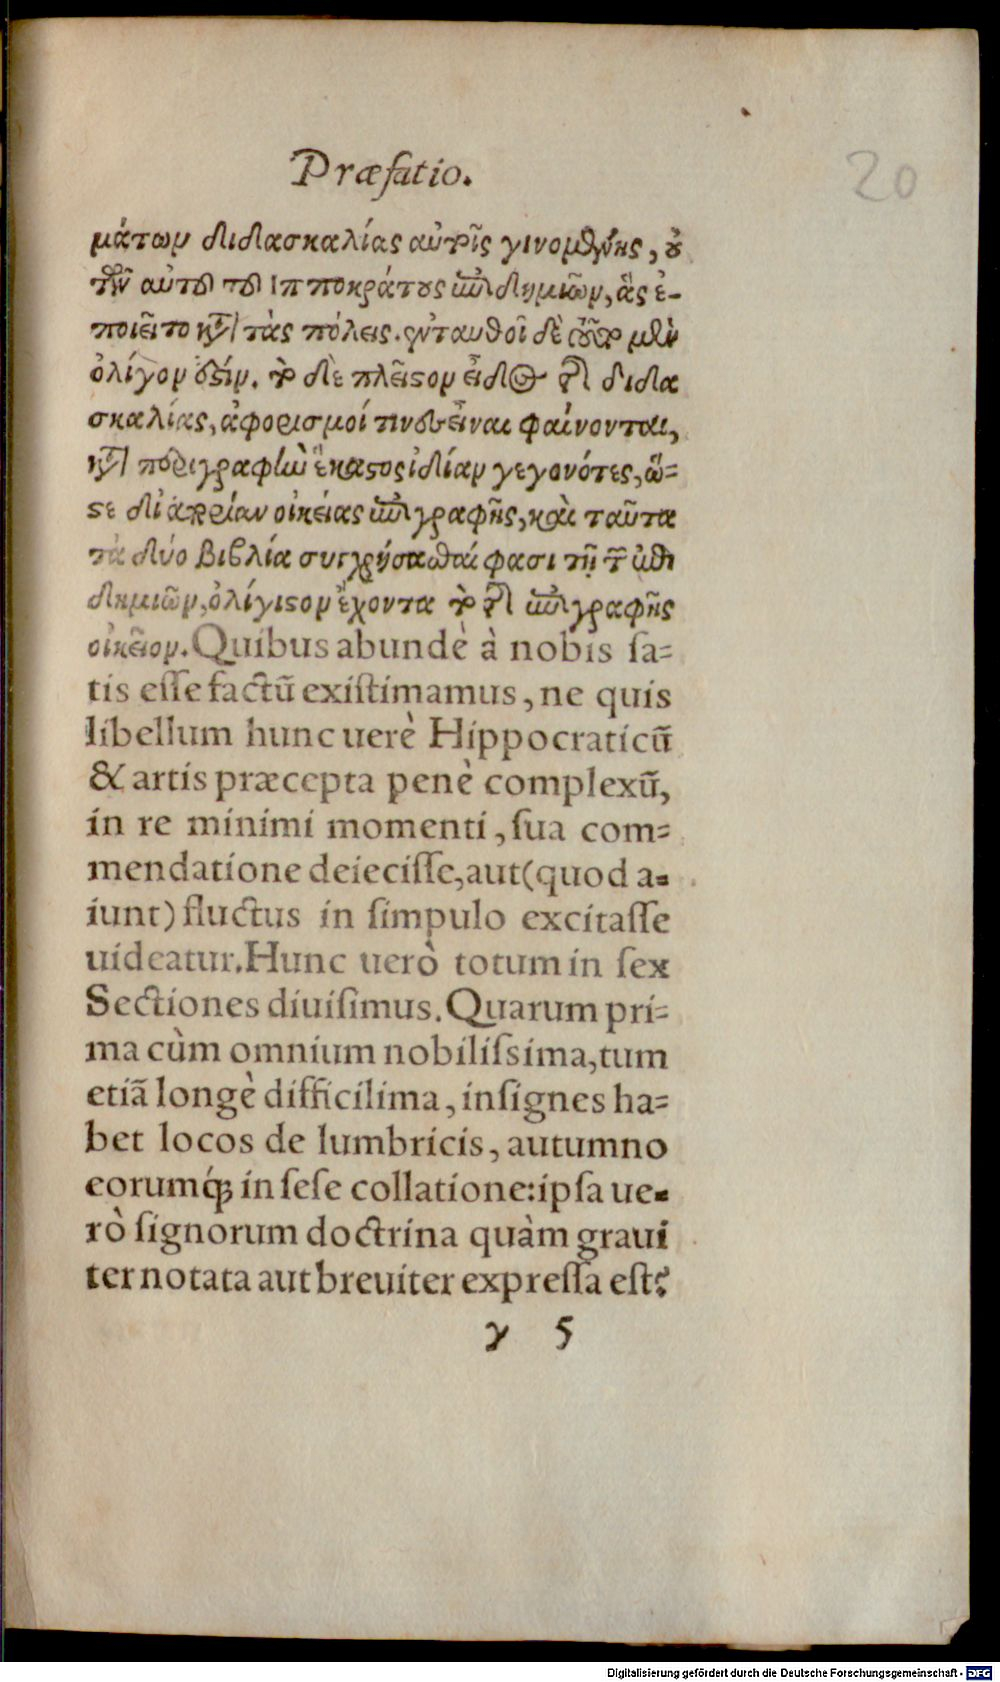 Præfatio.
20
μάτων διδασκαλίας αὐτοῖς γινομένης, οὐ
τῶν αὐτοῦ τοῦ Ἱπποκράτους ἐπιδημιῶν, ἃς ἐ-
ποιεῖτο κατὰ τὰς πόλεις. ἐνταυθοῖ δὲ μὲν
ὀλίγον ἐστίν. τὸ δὲ πλεῖστον εἶδος τῆς διδα
σκαλίας, ἀφορισμοί τινες εἶναι φαίνονται,
κατὰ περιγραφὴν ἕκαστος ἰδίαν γεγονότες, ὥ=
στε οἰκείας ἐπιγραφῆς, καὶ ταῦτα
τὰ δύο βιβλία συγχρήσασθαί φασι τῇ τῶν ἐπι
δημιῶν, ὀλίγιστον ἔχοντα τὸ τῆς ἐπιγραφῆς
οἰκεῖον. Quibus abundè à nobis ſa=
tis eſſe factũ exiſtimamus, ne quis
libellum hunc uerè Hippocraticũ
& artis præcepta penè complexũ,
in re minimi momenti, ſua com=
mendatione deieciſſe, aut (quod a=
iunt) fluctus in ſimpulo excitaſſe
uideatur. Hunc uerò totum in ſex
Sectiones diuiſimus. Quarum pri=
ma cùm omnium nobiliſsima, tum
etiã longè difficilima, inſignes ha=
bet locos de lumbricis, autumno
eorumq́; in ſeſe collatione: ipſa ue=
rò ſignorum doctrina quàm graui
ter notata aut breuiter expreſſa eſt?
γ 5
Digitalisierung gefördert durch die Deutsche Forschungsgemeinschaft - DFG